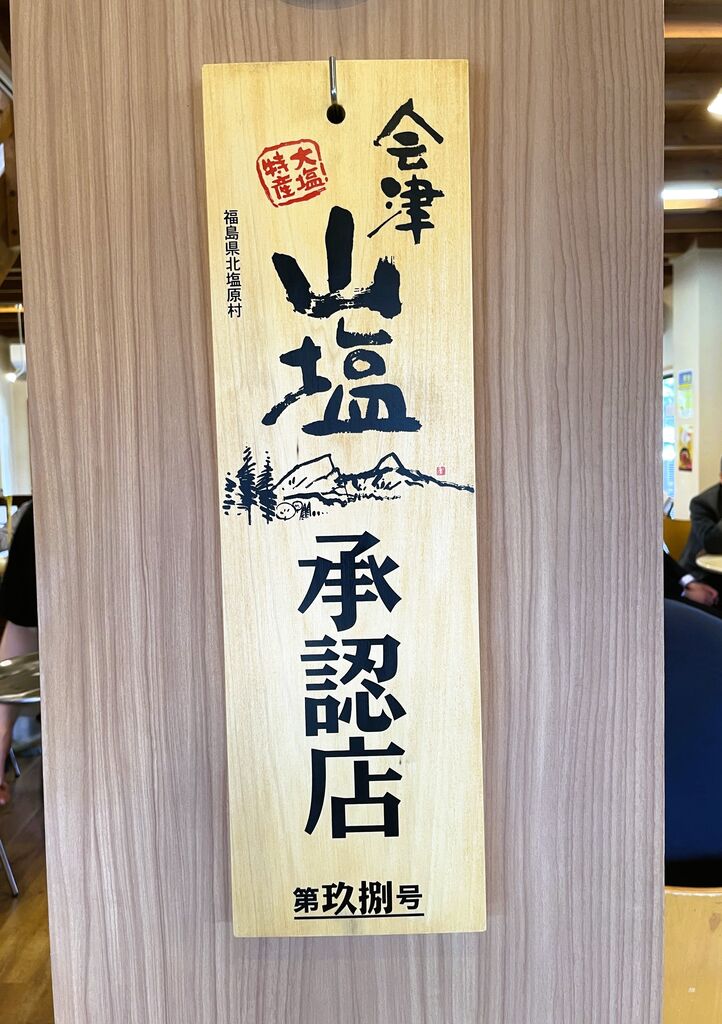 会津
山塩
大塩
特産
福島県北塩原村
承認店
第玖捌号